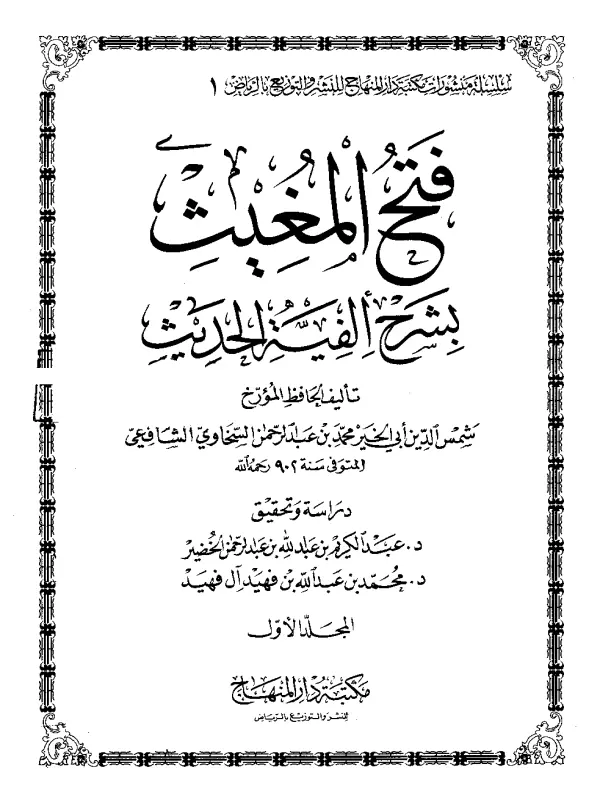 سلسلة منشورات مكتبة دار المنهاج للنشر والتوزيع بالرياض ١
فَتْحُ المُغِيثِ
بِشَرْحِ ألفِيَّةِ الحَدِيثِ
تأليف الحافظ المؤرّخ
شمس الدين أبي الخير محمد بن عبد الرحمن السخاوي الشافعي
المتوفى سنة ٩٠٢ رحمه الله
دراسة وتحقيق
د. عبد الكريم بن عبد الله بن عبد الرحمن الخضير
د. محمد بن عبد الله بن فهيد آل فهيد
المجلد الأول
مكتبة دار المنهاج
للنشر والتوزيع بالرياض